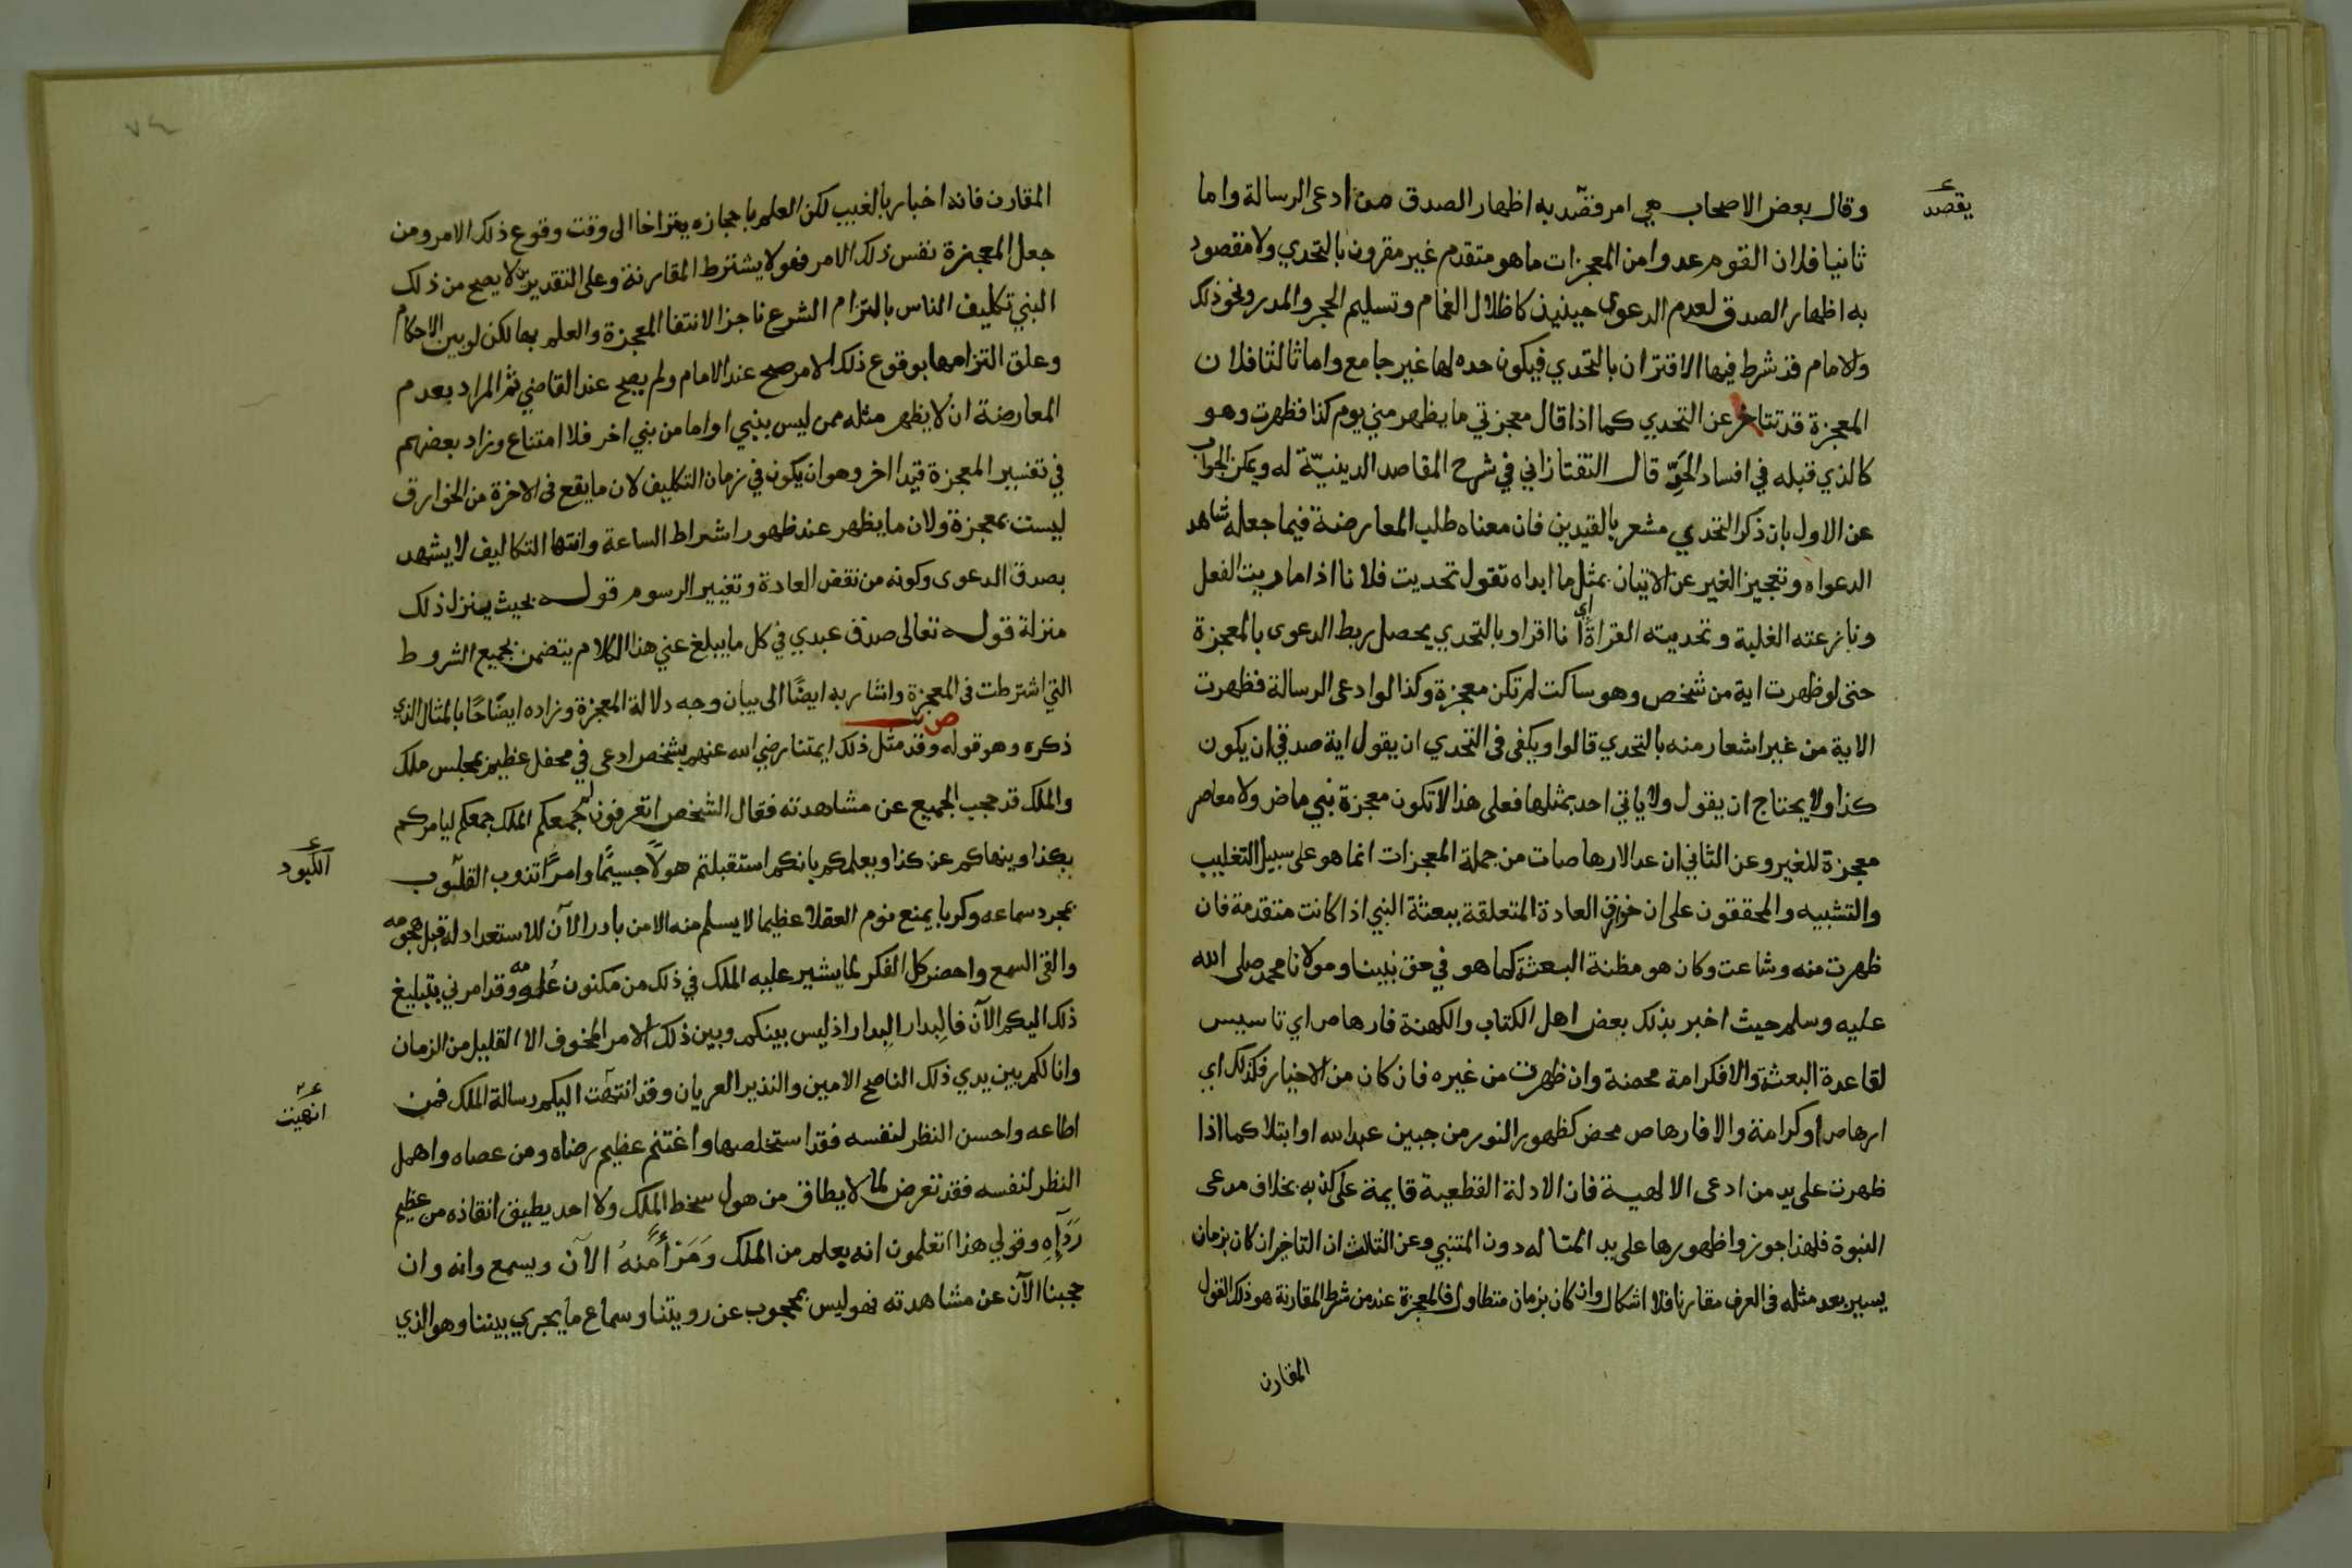 وقال بعض الاصحاب هي امر قصد به اظهار الصدق من ادعى الرسالة واما
يقصد
ثانيا فلان القوم عدوا من المعجزات ما هو متقدم غير مقرون بالتحدي ولا مقصود
به اظهار الصدق لعدم الدعوى حينيذ كاظلال الغمام وتسليم الحجر والمدر ونحو ذلك
والامام قد شرط فيها الاقتران بالتحدي فيكون حده لها غير جامع واما ثالثا فلان
المعجزة قد تتاخر عن التحدي كما اذا قال معجزتي ما يظهر مني يوم كذا فظهرت وهو
كالذي قبله في افساد الحد قال التفتازاني في شرح المقاصد الدينية له ويمكن الجواب
عن الاول بان ذكر التحدي مشعر بالقيدين فان معناه طلب المعارضة فيما جعله شاهد
الدعواه وتعجيز الغير عن الاتيان بمثل ما ابداه تقول تحديت فلانا اذا ماريت الفعل
ونازعته الغلبة وتحديته القراة اي انا اقرا وبالتحدي يحصل ربط الدعوى بالمعجزة
حتى لو ظهرت اية من شخص وهو ساكت لم تكن معجزة وكذا لو ادعى الرسالة فظهرت
الاية من غير اشعار منه بالتحدي قالوا ويكفى فى التحدي ان يقول اية صدقي ان يكون
كذا ولا يحتاج ان يقول ولا ياتي احد بمثلها فعلى هذا لا تكون معجزة نبي ماض ولا معاصر
معجزة للغير وعن الثاني ان عد الارهاصات من جملة المعجزات انما هو على سبيل التغليب
والتشبيه والمحققون على ان خوارق العادة المتعلقة ببعثة النبي اذا كانت متقدمة فان
ظهرت منه وشاعت وكان هو مظنة البعثة كما هو في حق نبينا ومولانا محمد صلى الله
عليه وسلم حيث اخبر بذلك بعض اهل الكتاب والكهنة فارهاص اي تاسيس
لقاعدة البعثة والا فكرامة محضة وان ظهرت من غيره فان كان من الاخيار فكذلك اي
ارهاص او كرامة والا فارهاص محض كظهور النور من جبين عبد الله او ابتلا كما اذا
ظهرت على يد من ادعى الالهية فان الادلة القطعية قايمة على كذبه بخلاف مدعى
النبوة فلهذا جوزوا ظهورها على يد المتاله دون المتنبي وعن الثالث ان التاخير ان كان بزمان
يسير بعد مثله فى العرف مقارنا فلا اشكال وان كان بزمان متطاول فالمعجزة عند من شرط المقارنة هو ذلك القول
المقارن
المقارن فانه اخبار بالغيب لكن العلم باعجازه يتراخا الى وقت وقوع ذلك الامر ومن
جعل المعجزة نفس ذلك الامر فهو لا يشترط المقارنة وعلى التقديرين لا يصح من ذلك
النبي تكليف الناس بالتزام الشرع ناجزا لانتفا المعجزة والعلم بها لكن لو بين الاحكام
وعلق التزامها بوقوع ذلك الامر صح عند الامام ولم يصح عند القاضي ثم المراد بعدم
المعارضة ان لا يظهر مثله ممن ليس بنبي او اما من نبي اخر فلا امتناع وزاد بعضهم
في تفسير المعجزة قيدا اخر وهو ان يكون في زمان التكليف لان ما يقع فى الاخرة من الخوارق
ليست بمعجزة ولان ما يظهر عند ظهور اشراط الساعة وانتها التكاليف لا يشهد
بصدق الدعوى وكونه من نقض العادة وتغيير الرسوم قوله بحيث ينزل ذلك
منزلة قوله تعالى صدق عبدي في كل ما يبلغ عني هذا الكلام يتضمن جميع الشروط
التي اشترطت فى المعجزة واشار به ايضا الى بيان وجه دلالة المعجزة وزاده ايضاحا بالمثال الذي
ذكره وهو قوله ص وقد مثل ذلك ايمتنا رضي الله عنهم بشخص ادعى في محفل عظيم بمجلس ملك
والملك قد حجب الجميع عن مشاهدته فقال الشخص اتعرفون لم جمعكم الملك جمعكم ليامركم
بكذا وينهاكم عن كذا ويعلمكم بانكم استقبلتم هولا جسيما وامرا تذوب القلوب
الكبود
بمجرد سماعه وكربا يمنع نوم العقلا عظيما لا يسلم منه الا من بادر الآن للاستعداد له قبل هجومه
والقى السمع واحضر كل الفكر لما يشير عليه الملك في ذلك من مكنون علمه وقد امرني بتبليغ
ذلك اليكم الآن فالبدار البدار اذ ليس بينكم وبين ذلك الامر المخوف الا القليل من الزمان
وانا لكم بين يدي ذلك الناصح الامين والنذير العريان وقد انتهت اليكم رسالة الملك فمن
انهيت
اطاعه واحسن النظر لنفسه فقد استخلصها واغتنم عظيم رضاه ومن عصاه واهمل
النظر لنفسه فقد تعرض لما لا يطاق من هول سخط الملك ولا احد يطيق انقاذه من عظيم
وقولي هذا اتعلمون انه يعلم من الملك الآن ويسمع وانه وان
حجبنا الآن عن مشاهدته فهو ليس بمحجوب عن رويتنا وسماع ما يجري بيننا وهو الذي